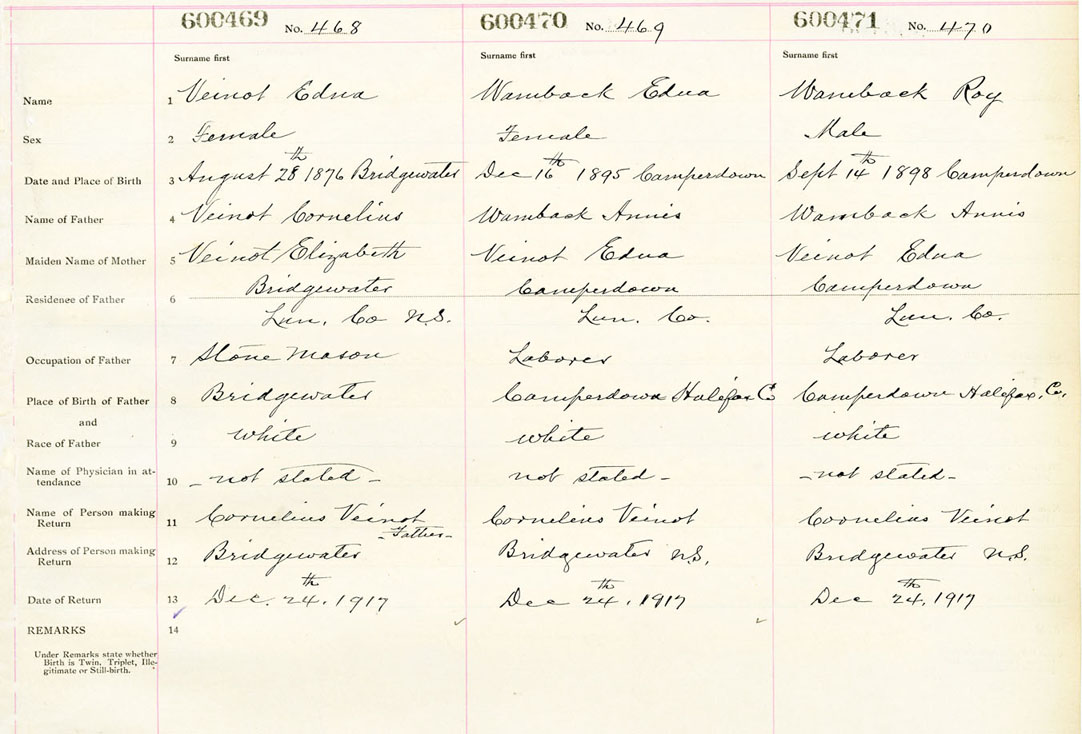 600469 No. 468 600470 No. 469 600471 No. 470
Surname first Surname first Surname first
Name 1 Veinot Edna Wamback Edna Wamback Roy
Sex 2 Female Female Male
Date and Place of Birth 3 August 28th 1876 Bridgewater Dec 16th 1895 Camperdown Sept 14th 1898 Camperdown
Name of Father 4 Veinot Cornelius Wamback Annis Wamback Annis
Maiden Name of Mother 5 Veinot Elizabeth Veinot Edna Veinot Edna
Residence of Father 6 Bridgewater Camperdown Camperdown
Lun. Co N.S. Lun. Co. Lun. Co.
Occupation of Father 7 Stone Mason Laborer Laborer
Place of Birth of Father 8 Bridgewater Camperdown Halifax Co Camperdown Halifax, Co,
and
Race of Father 9 white white white
Name of Physician in at-
tendance 10 - not stated - not stated - - not stated -
Name of Person making
Return 11 Cornelius Veinot Cornelius Veinot Cornelius Veinot
- Father -
Address of Person making
Return 12 Bridgewater Bridgewater N.S. Bridgewater N.S.
Date of Return 13 Dec. 24th, 1917 Dec 24th, 1917 Dec 24th, 1917
REMARKS 14
Under Remarks state whether
Birth is Twin, Triplet, Ille-
gitimate or Still-birth.